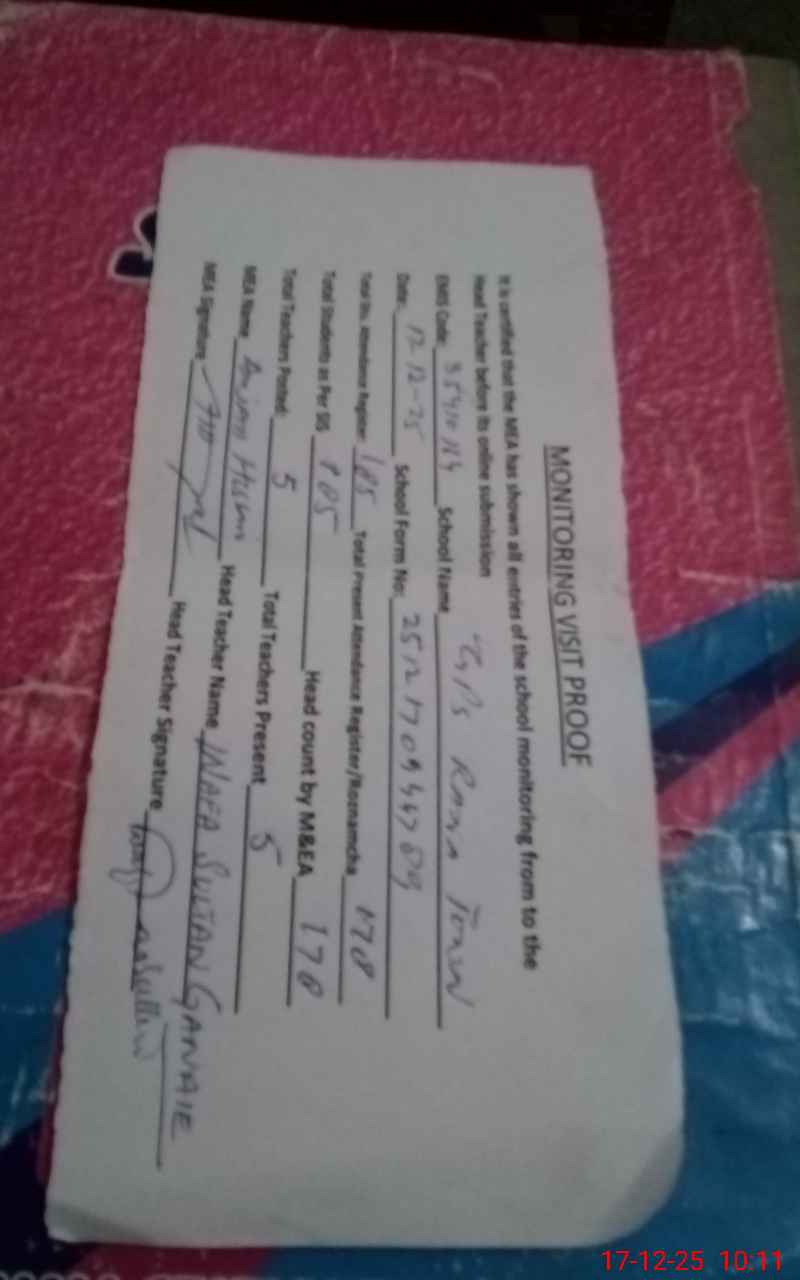 MONITORING VISIT PROOF
It is certified that the MEA has shown all entries of the school monitoring from to the
Head Teacher before its online submission
EMIS Code: School Name
Date: 17-12-25 School Form No:
Total Stu. Attendance Register 185 Total Present Attendance Register/Roznamcha 178
Total Students as Per SIS 185 Head count by M&EA 178
Total Teachers Posted: 5 Total Teachers Present 5
MEA Name Head Teacher Name SULTAN
MEA Signature Head Teacher Signature
17-12-25 10:11